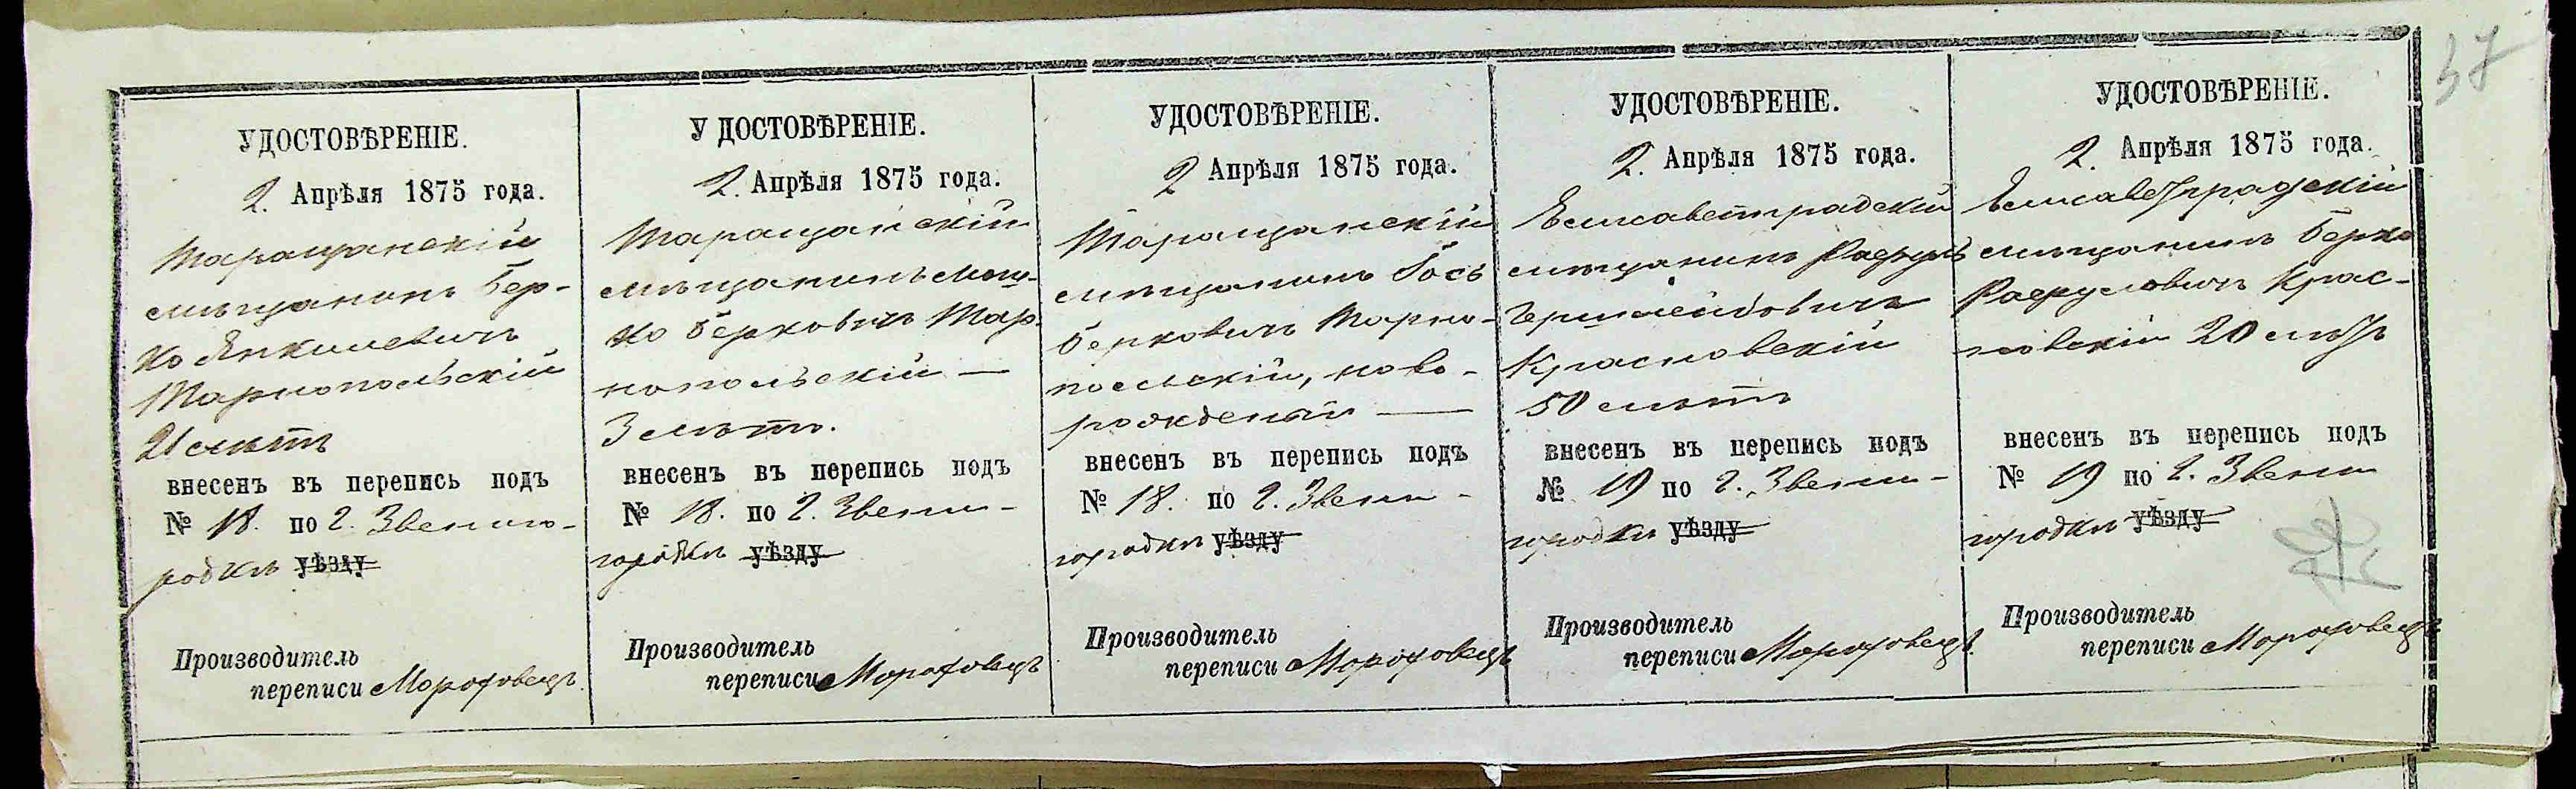 37
УДОСТОВѢРЕНІЕ.
2. Апрѣля 1875 года.
Таращанскій
мѣщанинъ Бер-
ко Янкилевичъ
Тарнопольскій
21 лѣтъ
внесенъ въ перепись подъ
№ 18. по г. Звениго-
родкѣ уѣзду
Производитель
переписи
УДОСТОВѢРЕНІЕ.
2. Апрѣля 1875 года.
Таращанскій
мѣщанинъ Мош-
ко Берковичъ Тар-
нопольскій —
3 лѣтъ.
внесенъ въ перепись подъ
№ 18. по г. Звени-
городкѣ уѣзду
Производитель
переписи
УДОСТОВѢРЕНІЕ.
2 Апрѣля 1875 года.
Таращанскій
мѣщанинъ Іось
Берковичъ Тарно-
польскій, ново-
рожденый —
внесенъ въ перепись подъ
№ 18. по г. Звени-
городкѣ уѣзду
Производитель
переписи
УДОСТОВѢРЕНІЕ.
2. Апрѣля 1875 года.
Елисаветградскій
мѣщанинъ Рафулъ
Гершлейбовичъ
Красновскій
50 лѣтъ
внесенъ въ перепись подъ
№ 19 по г. Звени-
городкѣ уѣзду
Производитель
переписи
УДОСТОВѢРЕНІЕ.
2. Апрѣля 1875 года.
Елисаветградскій
мѣщанинъ Берко
Рафуловичъ Крас-
новскій 20 лѣтъ
внесенъ въ перепись подъ
№ 19 по г. Звени
городкѣ уѣзду
Производитель
переписи